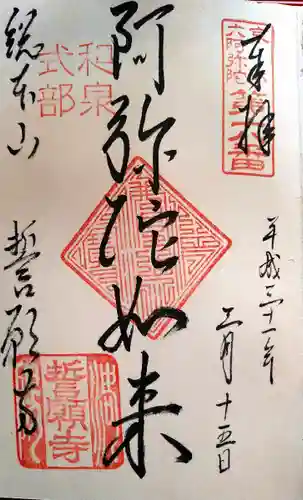 奉拝
京都
六阿弥陀
第六番
平成三十一年
二月十五日
阿弥陀如来
和泉
式部
総本山
誓願寺
誓願寺